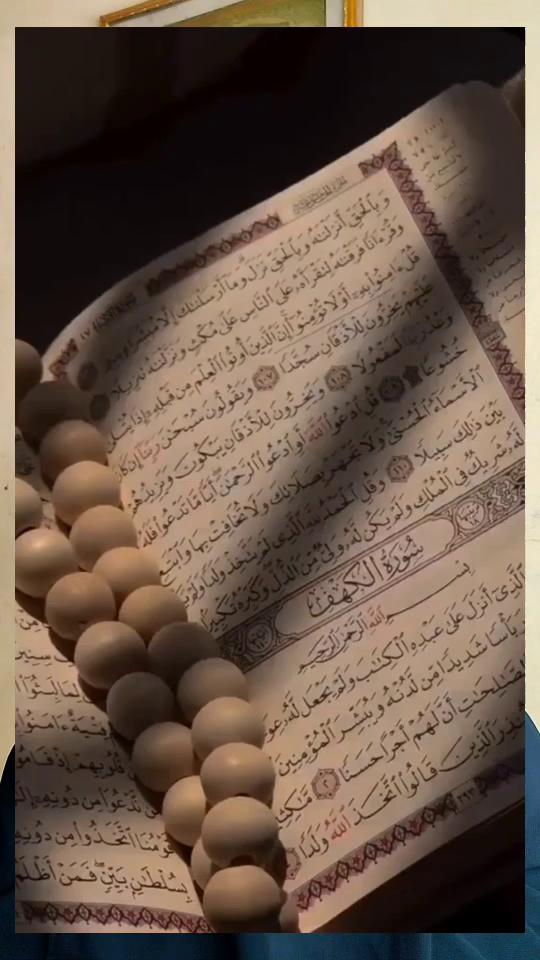 وَبِٱلْحَقِّ أَنزَلْنَٰهُ وَبِٱلْحَقِّ نَزَلَ وَمَآ أَرْسَلْنَٰكَ إِلَّا مُبَشِّرًا
وَقُرْءَانًا فَرَقْنَٰهُ لِتَقْرَأَهُۥ عَلَى ٱلنَّاسِ عَلَىٰ مُكْثٍ وَنَزَّلْنَٰهُ تَنزِيلًا
قُلْ ءَامِنُوا۟ بِهِۦٓ أَوْ لَا تُؤْمِنُوٓا۟ إِنَّ ٱلَّذِينَ أُوتُوا۟ ٱلْعِلْمَ مِن قَبْلِهِۦٓ إِذَا
عَلَيْهِمْ يَخِرُّونَ لِلْأَذْقَانِ سُجَّدًا ١٠٧ وَيَقُولُونَ سُبْحَٰنَ رَبِّنَآ إِن كَانَ
وَعْدُ رَبِّنَا لَمَفْعُولًا ١٠٨ وَيَخِرُّونَ لِلْأَذْقَانِ يَبْكُونَ وَيَزِيدُهُمْ
خُشُوعًا ١٠٩ قُلِ ٱدْعُوا۟ ٱللَّهَ أَوِ ٱدْعُوا۟ ٱلرَّحْمَٰنَ أَيًّا مَّا تَدْعُوا۟ فَلَهُ
ٱلْأَسْمَآءُ ٱلْحُسْنَىٰ وَلَا تَجْهَرْ بِصَلَاتِكَ وَلَا تُخَافِتْ بِهَا وَٱبْتَغِ
بَيْنَ ذَٰلِكَ سَبِيلًا ١١٠ وَقُلِ ٱلْحَمْدُ لِلَّهِ ٱلَّذِى لَمْ يَتَّخِذْ وَلَدًا وَلَمْ
لَّهُۥ شَرِيكٌ فِى ٱلْمُلْكِ وَلَمْ يَكُن لَّهُۥ وَلِىٌّ مِّنَ ٱلذُّلِّ وَكَبِّرْهُ تَكْبِيرًا
سُورَةُ الكَهْفِ
بِسْمِ ٱللَّهِ ٱلرَّحْمَٰنِ ٱلرَّحِيمِ
ٱلَّذِىٓ أَنزَلَ عَلَىٰ عَبْدِهِ ٱلْكِتَٰبَ وَلَمْ يَجْعَل لَّهُۥ
بَأْسًا شَدِيدًا مِّن لَّدُنْهُ وَيُبَشِّرَ ٱلْمُؤْمِنِينَ
ٱلصَّٰلِحَٰتِ أَنَّ لَهُمْ أَجْرًا حَسَنًا ٢
ٱلَّذِينَ قَالُوا۟ ٱتَّخَذَ ٱللَّهُ وَلَدًا
٢٩٣
قُلُوبِهِمْ إِذْ قَامُوا۟
مِن دُونِهِۦٓ
قَوْمُنَا ٱتَّخَذُوا۟ مِن دُونِهِۦٓ
بِسُلْطَٰنٍۭ بَيِّنٍ فَمَنْ أَظْلَمُ